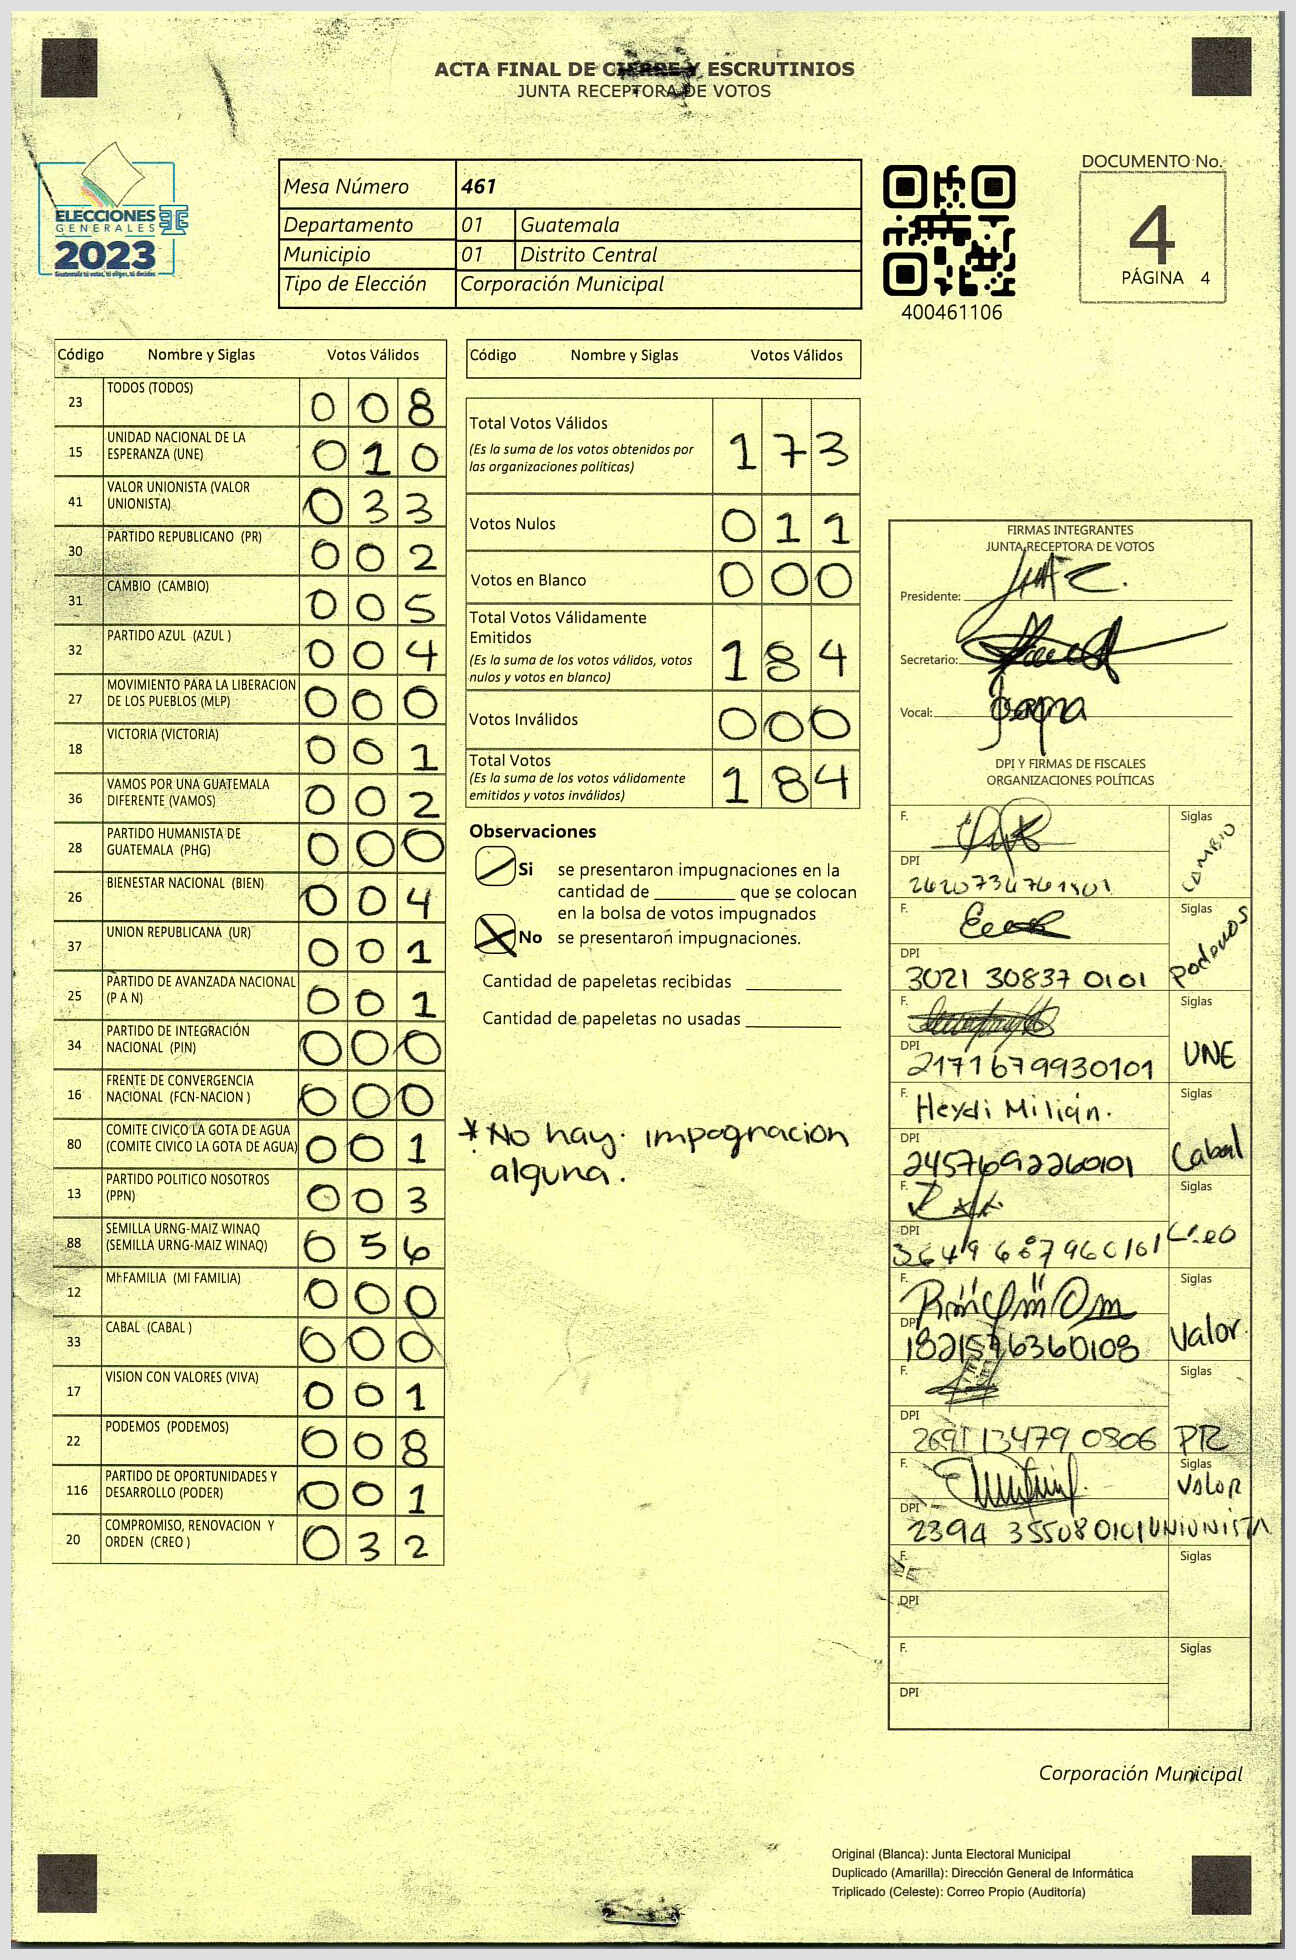 ACTA FINAL DE CIERRE Y ESCRUTINIOS
JUNTA RECEPTORA DE VOTOS
ELECCIONES
GENERALES
2023
Guatemala tú votas, tú eliges, tú decides
Mesa Número 461
Departamento 01 Guatemala
Municipio 01 Distrito Central
Tipo de Elección Corporación Municipal
400461106
DOCUMENTO No.
4
PÁGINA 4
Código Nombre y Siglas Votos Válidos
23 TODOS (TODOS) 0 0 8
15 UNIDAD NACIONAL DE LA ESPERANZA (UNE) 0 1 0
41 VALOR UNIONISTA (VALOR UNIONISTA) 0 3 3
30 PARTIDO REPUBLICANO (PR) 0 0 2
31 CAMBIO (CAMBIO) 0 0 5
32 PARTIDO AZUL (AZUL ) 0 0 4
27 MOVIMIENTO PARA LA LIBERACION DE LOS PUEBLOS (MLP) 0 0 0
18 VICTORIA (VICTORIA) 0 0 1
36 VAMOS POR UNA GUATEMALA DIFERENTE (VAMOS) 0 0 2
28 PARTIDO HUMANISTA DE GUATEMALA (PHG) 0 0 0
26 BIENESTAR NACIONAL (BIEN) 0 0 4
37 UNION REPUBLICANA (UR) 0 0 1
25 PARTIDO DE AVANZADA NACIONAL (P A N) 0 0 1
34 PARTIDO DE INTEGRACIÓN NACIONAL (PIN) 0 0 0
16 FRENTE DE CONVERGENCIA NACIONAL (FCN-NACION ) 0 0 0
80 COMITE CIVICO LA GOTA DE AGUA (COMITE CIVICO LA GOTA DE AGUA) 0 0 1
13 PARTIDO POLITICO NOSOTROS (PPN) 0 0 3
88 SEMILLA URNG-MAIZ WINAQ (SEMILLA URNG-MAIZ WINAQ) 0 5 6
12 MI FAMILIA (MI FAMILIA) 0 0 0
33 CABAL (CABAL ) 0 0 0
17 VISION CON VALORES (VIVA) 0 0 1
22 PODEMOS (PODEMOS) 0 0 8
116 PARTIDO DE OPORTUNIDADES Y DESARROLLO (PODER) 0 0 1
20 COMPROMISO, RENOVACION Y ORDEN (CREO ) 0 3 2
Código Nombre y Siglas Votos Válidos
Total Votos Válidos 1 7 3
(Es la suma de los votos obtenidos por
las organizaciones políticas)
Votos Nulos 0 1 1
Votos en Blanco 0 0 0
Total Votos Válidamente
Emitidos 1 8 4
(Es la suma de los votos válidos, votos
nulos y votos en blanco)
Votos Inválidos 0 0 0
Total Votos 1 8 4
(Es la suma de los votos válidamente
emitidos y votos inválidos)
Observaciones
Si se presentaron impugnaciones en la
cantidad de ________ que se colocan
en la bolsa de votos impugnados
No se presentaron impugnaciones.
Cantidad de papeletas recibidas
Cantidad de papeletas no usadas
* No hay impognacion
alguna.
FIRMAS INTEGRANTES
JUNTA RECEPTORA DE VOTOS
Presidente:
Secretario:
Vocal:
DPI Y FIRMAS DE FISCALES
ORGANIZACIONES POLÍTICAS
F. Siglas CAMBIO
DPI
F. Siglas Podemos
DPI 3021 30837 0101
F. Siglas UNE
DPI 2171679930101
F. Heydi Milián. Siglas Cabal
DPI 2457692260101
F. Siglas Creo
DPI
F. Siglas Valor
DPI 1821576360108
F. Siglas PR
DPI 2691 13479 0806
F. Siglas VALOR
DPI 2394 35508 0101 UNIONISTA
F. Siglas
DPI
F. Siglas
DPI
Corporación Municipal
Original (Blanca): Junta Electoral Municipal
Duplicado (Amarilla): Dirección General de Informática
Triplicado (Celeste): Correo Propio (Auditoría)